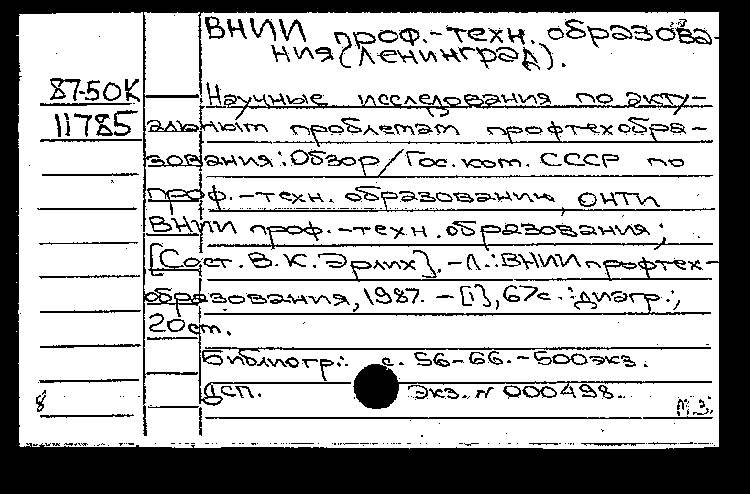 ВНИИ проф.-техн. образова-
ния (Ленинград).
87-50К
11785
Научные исследования по акту-
альным проблемам профтехобра-
зования: Обзор / Гос. ком. СССР по
проф.-техн. образованию, ОНТИ
ВНИИ проф.-техн. образования;
[Сост. В. К. Эрлих]. - Л.: ВНИИ профтех-
образования, 1987. - [1], 67с.: диагр.;
20см.
Библиогр.: с. 56-66. - 500экз.
ДСП. Экз. N 000498.
8
М.З.